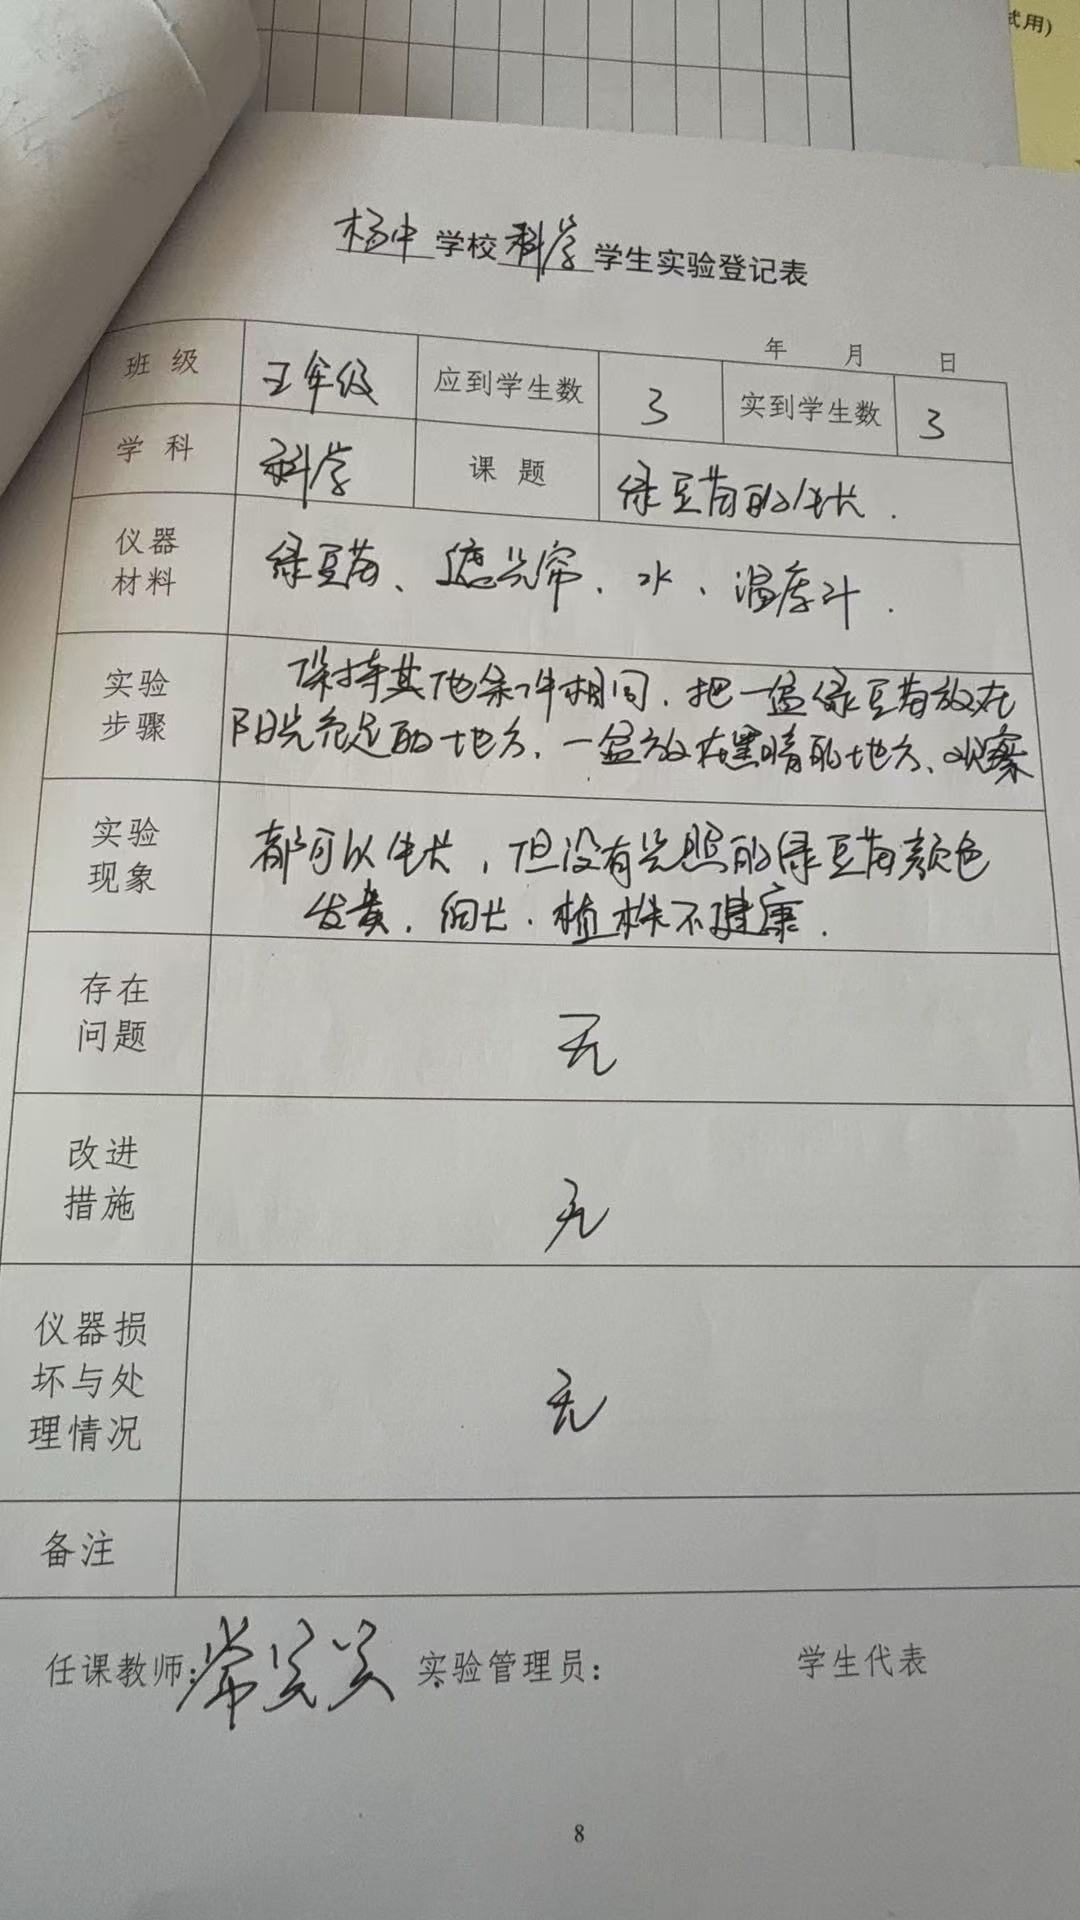 试用)
杨中学校科学学生实验登记表
年 月 日
班级 五年级 应到学生数 3 实到学生数 3
学科 科学 课题 绿豆苗的生长.
仪器材料 绿豆苗、遮光帘、水、温度计.
实验步骤 保持其他条件相同.把一盆绿豆苗放在
阳光充足的地方、一盆放在黑暗的地方、观察
实验现象 都可以生长,但没有光照的绿豆苗颜色
发黄.细长.植株不健康.
存在问题 无
改进措施 无
仪器损坏与处理情况 无
备注
任课教师:常 实验管理员: 学生代表
8